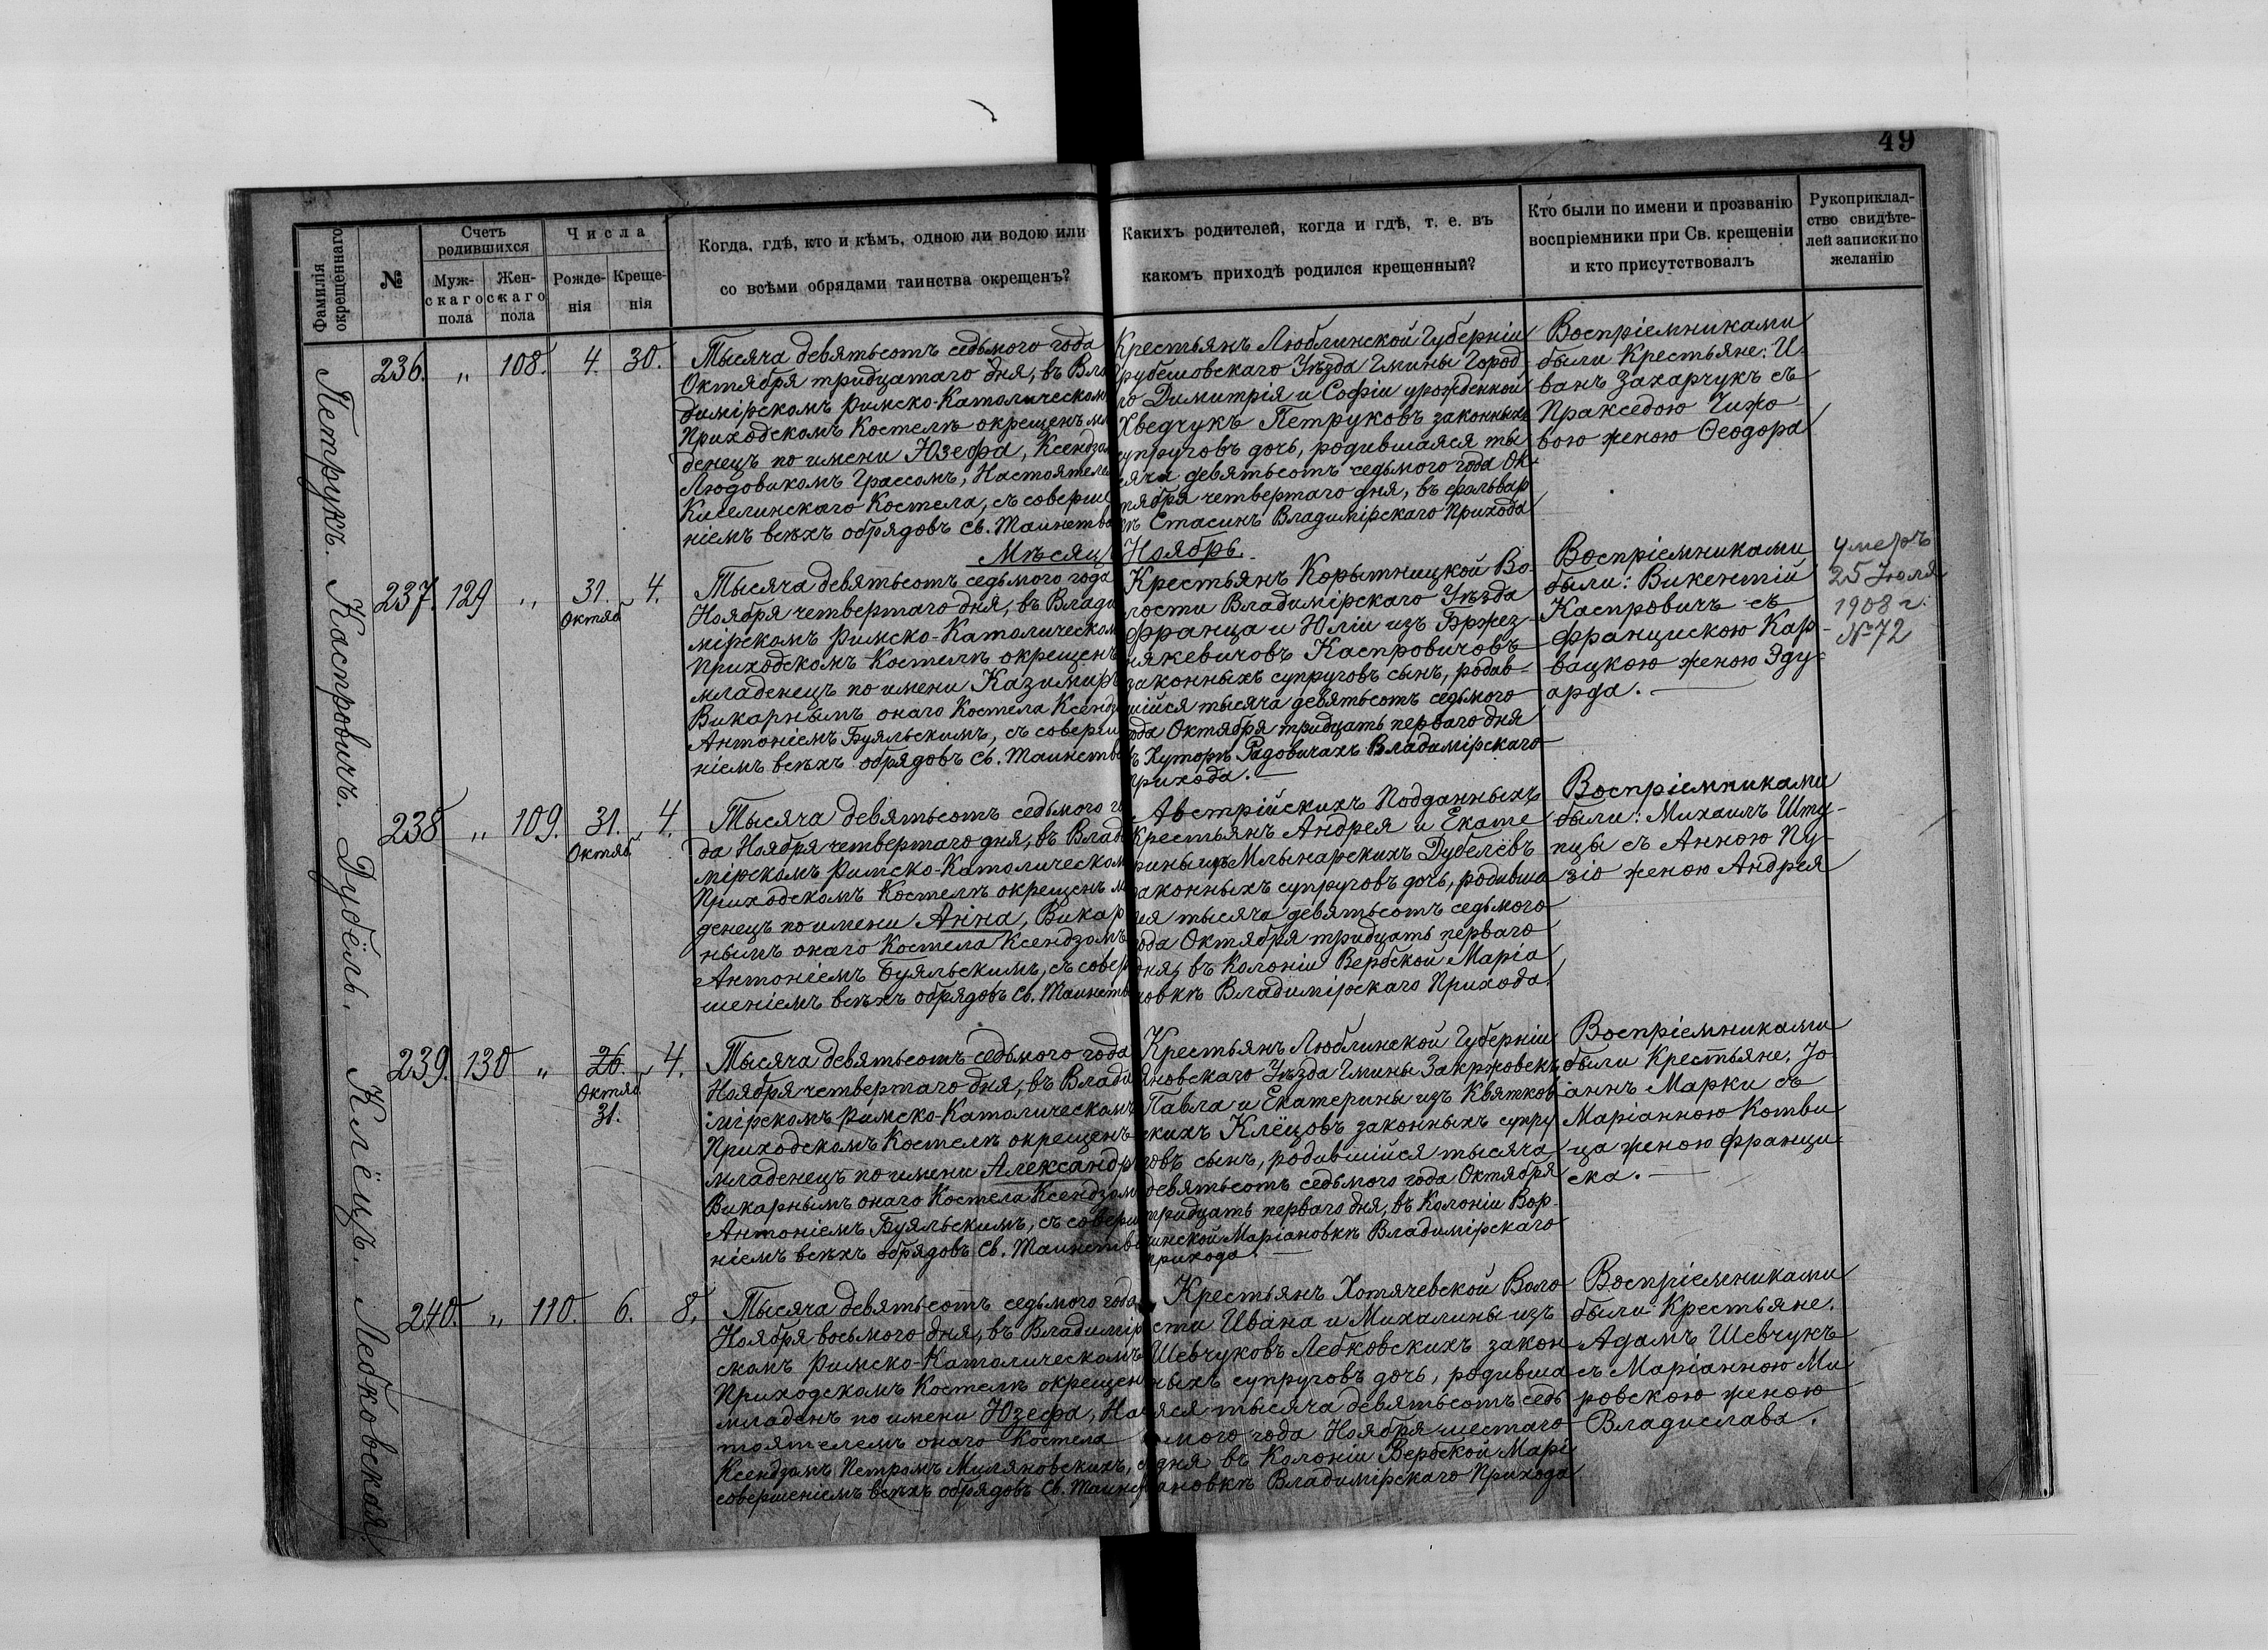 49
Фамилія
окрещеннаго
№
Счетъ
родившихся
Муж-
скаго
пола
Жен-
скаго
пола
Числа
Рожде-
нія
Креще-
нія
Когда, гдѣ, кто и кѣмъ, одною ли водою или
со всѣми обрядами таинства окрещенъ?
Какихъ родителей, когда и гдѣ, т. е. въ
какомъ приходѣ родился крещенный?
Кто были по имени и прозванію
воспріемники при Св. крещеніи
и кто присутствовалъ
Рукоприклад-
ство свидѣте-
лей записки по
желанію
Петрукъ.
236. „ 108. 4. 30.
Тысяча девятьсотъ седьмого года
Октября тридцатаго дня, въ Вла
димірскомъ Римско-Католическомъ
Приходскомъ Костелѣ окрещенъ мла
денецъ по имени Юзефа, Ксендзом
Людовикомъ Грассомъ, Настоятель
Киселинскаго Костела, съ соверше
ніемъ всѣхъ обрядовъ Св. Таинства
Крестьянъ Люблинской Губерніи
Грубешовскаго Уѣзда Гмины Город
ло Димитрія и Софіи урожденной
Хведчукъ Петруковъ законныхъ
супруговъ дочь, родившаяся ты
сяча девятьсотъ седьмого года Ок-
тября четвертаго дня, въ фольвар
кѣ Стасинъ Владимірскаго Прихода
Воспріемниками
были Крестьяне: И-
ванъ Захарчукъ съ
Пракседою Чижо-
вою женою Ѳеодора
Мѣсяцъ Ноябрь.
Каспровичъ.
237. 129 „ 31. Октяб. 4.
Тысяча девятьсотъ седьмого года
Ноября четвертаго дня, въ Влади
мірскомъ Римско-Католическом
Приходскомъ Костелѣ окрещенъ
младенецъ по имени Казимиръ
Викарнымъ онаго Костела Ксендз
Антоніемъ Буяльскимъ, съ соверш
ніемъ всѣхъ обрядовъ Св. Таинства
Крестьянъ Корытницкой Во-
лости Владимірскаго Уѣзда
Франца и Юліи изъ Бржез-
някевичовъ Каспровичовъ
законныхъ супруговъ сынъ, родив-
шійся тысяча девятьсотъ седьмого
года Октября тридцать перваго дня
въ Хуторѣ Радовичахъ Владимірскаго
Прихода.
Воспріемниками
были: Викентій
Каспровичъ съ
Францискою Кар-
вацкою женою Эду-
арда.
Умеръ
25 Іюля
1908 г.
№ 72
Дубёль.
238 „ 109. 31. Октяб. 4.
Тысяча девятьсотъ седьмого го
да Ноября четвертаго дня, въ Влади
мірскомъ Римско-Католическом
Приходскомъ Костелѣ окрещенъ мла
денецъ по имени Анна, Викар
нымъ онаго Костела Ксендзомъ
Антоніемъ Буяльскимъ, съ совер
шеніемъ всѣхъ обрядовъ Св. Таинств
Австрійскихъ Подданныхъ
Крестьянъ Андрея и Екате
рины изъ Млынарскихъ Дубелёвъ
законныхъ супруговъ дочь, родивша
яся тысяча девятьсотъ седьмого
года Октября тридцать перваго
дня, въ Колоніи Вербской Маріа
новкѣ Владимірскаго Прихода.
Воспріемниками
были: Михаилъ Шту-
пцы съ Анною Пу-
зіо женою Андрея
Клёцъ.
239. 130 „ 26. Октяб. 31. 4.
Тысяча девятьсотъ седьмого года
Ноября четвертаго дня, въ Влади
мірскомъ Римско-Католическомъ
Приходскомъ Костелѣ окрещенъ
младенецъ по имени Александръ
Викарнымъ онаго Костела Ксендзом
Антоніемъ Буяльскимъ, съ соверше
ніемъ всѣхъ обрядовъ Св. Таинства
Крестьянъ Люблинской Губерніи
Яновскаго Уѣзда Гмины Закржовекъ,
Павла и Екатерины изъ Квятков
скихъ Клёцовъ законныхъ супру
говъ сынъ, родившійся тысяча
девятьсотъ седьмого года Октября
тридцать перваго дня, въ Колоніи Вор-
чинской Маріановкѣ Владимірскаго
Прихода.
Воспріемниками
были Крестьяне, Іо
аннъ Марки съ
Маріанною Котви
ца женою Франци-
ска.
Лебковская.
240. „ 110. 6. 8.
Тысяча девятьсотъ седьмого года
Ноября восьмого дня, въ Владимір
скомъ Римско-Католическомъ
Приходскомъ Костелѣ окрещен
младенъ по имени Юзефа, Нас
тоятелемъ онаго Костела
Ксендзомъ Петромъ Миляновскихъ, с
совершеніемъ всѣхъ обрядовъ Св. Таинс
Крестьянъ Хотячевской Воло
сти Ивана и Михалины изъ
Шевчуковъ Лебковскихъ закон
ныхъ супруговъ дочь, родивша
яся тысяча девятьсотъ седь
мого года Ноября шестаго
дня въ Колоніи Вербской Марі
ановкѣ Владимірскаго Прихода
Воспріемниками
были Крестьяне.
Адамъ Шевчукъ
съ Маріанною Ми
ровскою женою
Владислава.